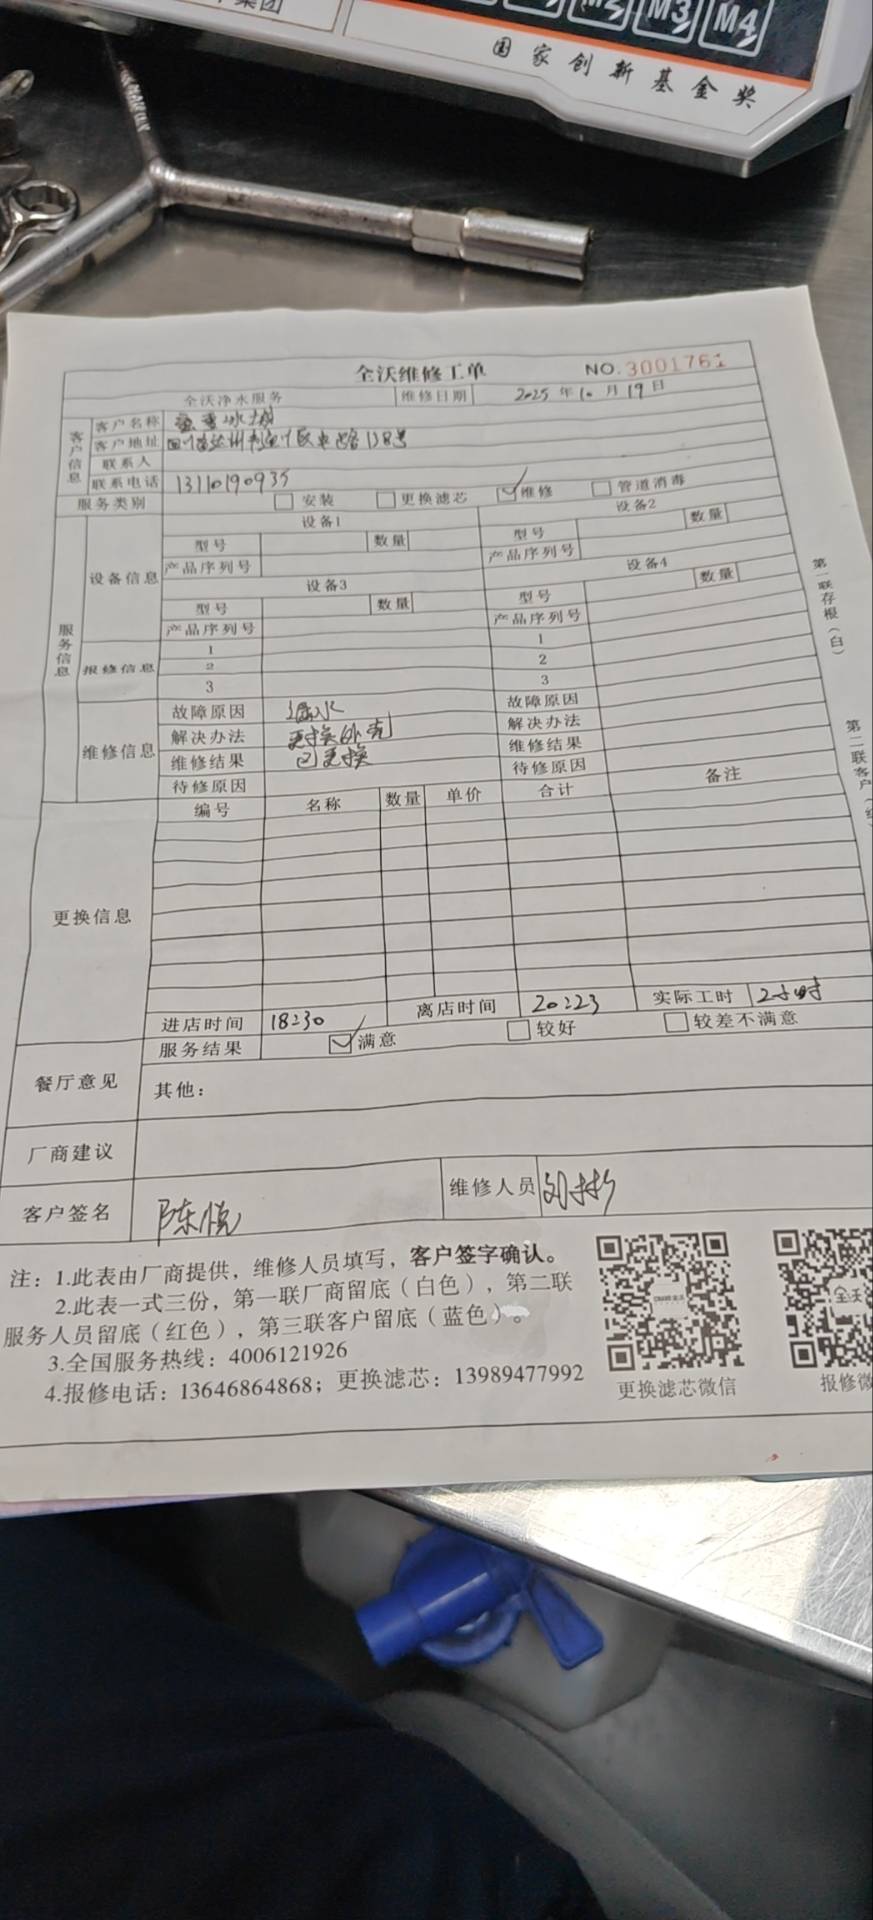 集团
M2 M3 M4
国家创新基金奖
全沃维修工单 NO.3001761
全沃净水服务 维修日期 2025年10月19日
客户信息
客户名称 蜜雪冰城
客户地址 四川省达州市通川区 138号
联系人
联系电话 13110190935
服务类别 安装 更换滤芯 ✓维修 管道消毒
服务信息
设备信息
设备1 设备2
型号 数量 型号 数量
产品序列号 产品序列号
设备3 设备4
型号 数量 型号 数量
产品序列号 产品序列号
报修信息
1 1
2 2
3 3
维修信息
故障原因 漏水 故障原因
解决办法 更换外壳 解决办法
维修结果 已更换 维修结果
待修原因 待修原因
更换信息
编号 名称 数量 单价 合计 备注
进店时间 18:30 离店时间 20:23 实际工时 2小时
服务结果 ✓满意 较好 较差不满意
餐厅意见 其他：
厂商建议
客户签名 陈悦 维修人员 刘彬
注：1.此表由厂商提供，维修人员填写，客户签字确认。
2.此表一式三份，第一联厂商留底（白色），第二联
服务人员留底（红色），第三联客户留底（蓝色）。
3.全国服务热线：4006121926
4.报修电话：13646864868；更换滤芯：13989477992
更换滤芯微信
报修微
全沃
第一联存根（白）
第二联客户（红